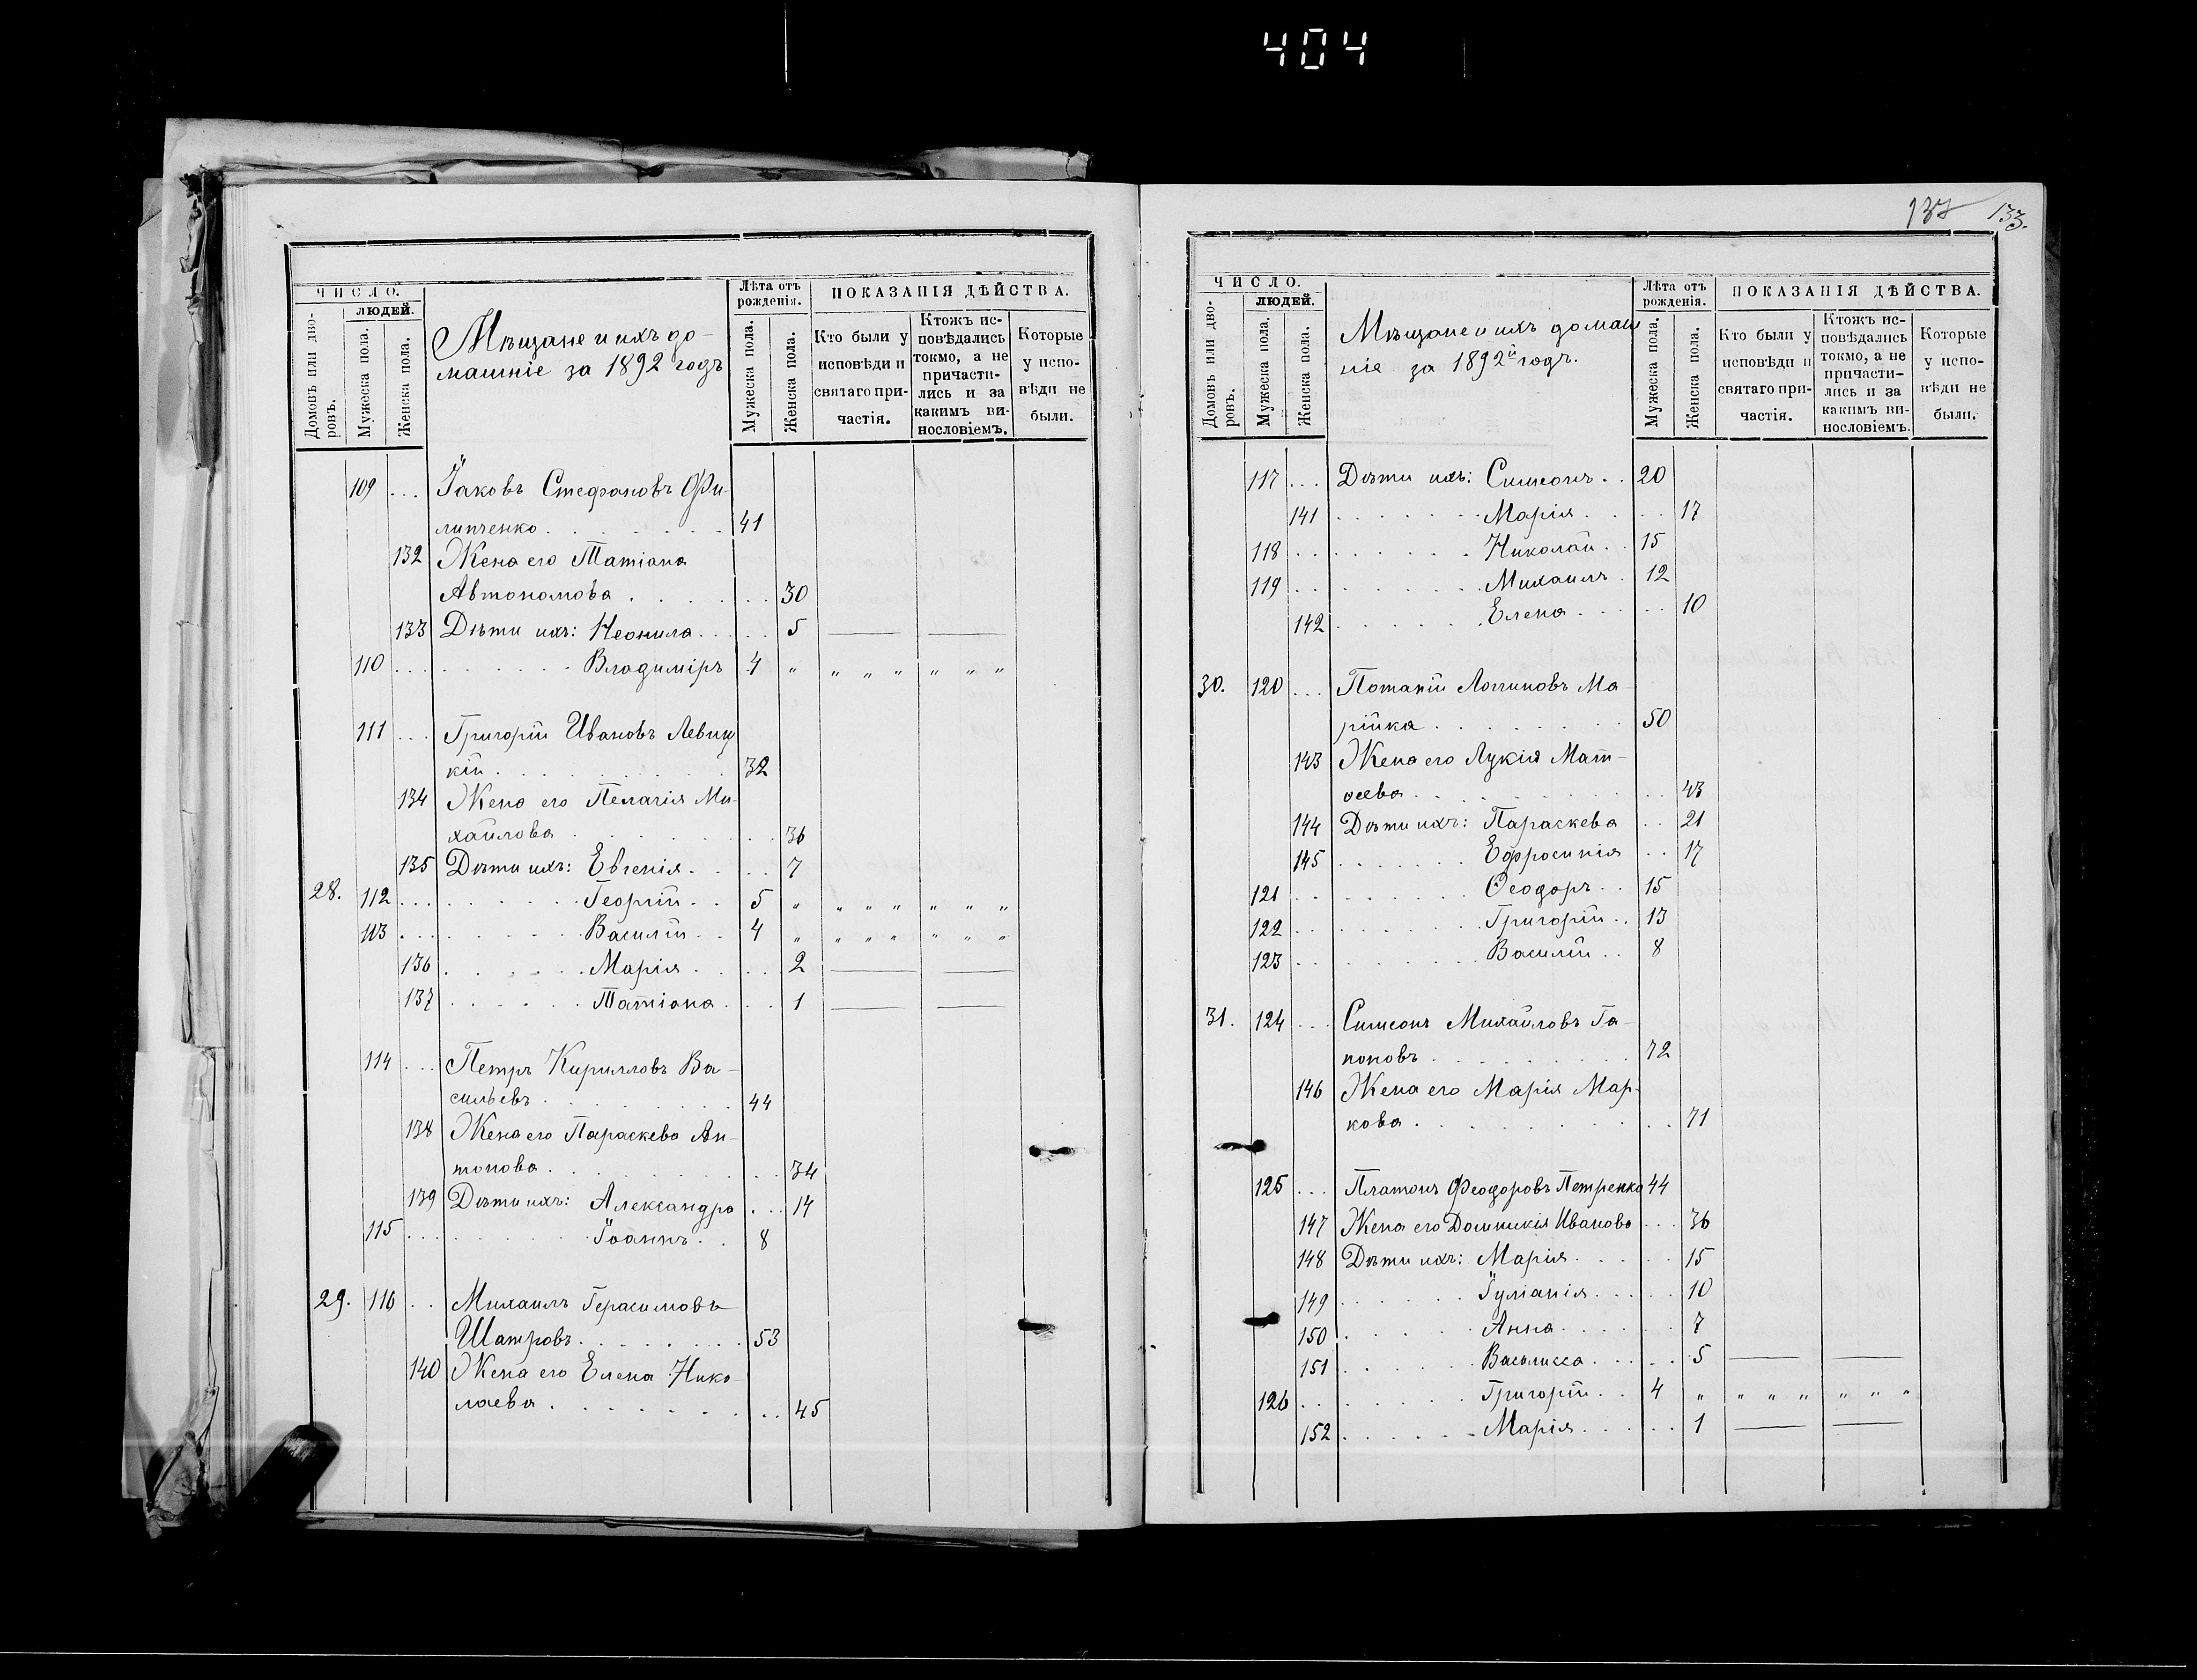 404
ЧИСЛО.
Домовъ или дворовъ.
ЛЮДЕЙ.
Мужеска пола.
Женска пола.
Мѣщане и ихъ до-
машніе за 1892 годъ
Лѣта отъ рожденія.
Мужеска пола.
Женска пола.
ПОКАЗАНІЯ ДѢЙСТВА.
Кто были у исповѣди и святаго причастія.
Ктожъ исповѣдались токмо, а не причастились и за какимъ винословіемъ.
Которые у исповѣди не были.
109 ... Іаковъ Стефановъ Фи-
липченко . . . . . . . 41
132 Жена его Татіана
Автономова . . . . . . . 30
133 Дѣти ихъ: Неонила . . . . . 5 — —
110 ... . . . . . . Владиміръ 4 „ „ „ „ „ „ „
111 ... Григорій Ивановъ Левиц
кій . . . . . . . . . 32
134 Жена его Пелагія Ми-
хайлова . . . . . . . . 36
135 Дѣти ихъ: Евгенія . . . . 7
28. 112 ... . . . . . Георгій . . 5 „ „ „ „ „ „ „
113 ... . . . . . Василій . . 4 „ „ „ „ „ „ „
136 . . . . . Марія . . . . 2 — —
137 . . . . . Татіана . . . 1 — —
114 ... Петръ Кирилловъ Ва-
сильевъ . . . . . . . . 44
138 Жена его Параскева Ан-
тонова . . . . . . . . . 34
139 Дѣти ихъ: Александра . . . 14
115 ... . . . . . Іоаннъ . . 8
29. 116 .. Михаилъ Герасимовъ
Шатровъ . . . . . . . 53
140 Жена его Елена Нико-
лаева . . . . . . . . . 45
137 133.
ЧИСЛО.
Домовъ или дворовъ.
ЛЮДЕЙ.
Мужеска пола.
Женска пола.
Мѣщане и ихъ домаш
ніе за 1892й годъ.
Лѣта отъ рожденія.
Мужеска пола.
Женска пола.
ПОКАЗАНІЯ ДѢЙСТВА.
Кто были у исповѣди и святаго причастія.
Ктожъ исповѣдались токмо, а не причастились и за какимъ винословіемъ.
Которые у исповѣди не были.
117 ... Дѣти ихъ: Симеонъ . . 20
141 . . . . . . . Марія . . . . 17
118 ... . . . . . . Николай . . 15
119 .. . . . . . . Михаилъ . 12
142 . . . . . . . Елена . . . . . 10
30. 120 ... Потапій Логиновъ Ма-
рійка . . . . . . . . 50
143 Жена его Лукія Мат-
ѳеева . . . . . . . . . . 43
144 Дѣти ихъ: Параскева . . 21
145 . . . . . . Ефросинія . . 17
121 .. . . . . . . Ѳеодоръ . . 15
122 .. . . . . . . Григорій . . 13
123 .. . . . . . . Василій . . 8
31. 124 ... Симеонъ Михайловъ Га-
поновъ . . . . . . . . 72
146 Жена его Марія Мар-
кова . . . . . . . . . . 71
125 ... Платонъ Феодоровъ Петренко 44
147 Жена его Домникія Иванова . . . 36
148 Дѣти ихъ: Марія . . . . . 15
149 . . . . . . Іуліанія . . . . . 10
150 . . . . . . Анна . . . . . . 7
151 . . . . . . Василисса . . . . . 5 — —
126 .. . . . . . . Григорій . . 4 „ „ „ „ „ „ „
152 . . . . . . Марія . . . . . . 1 — —